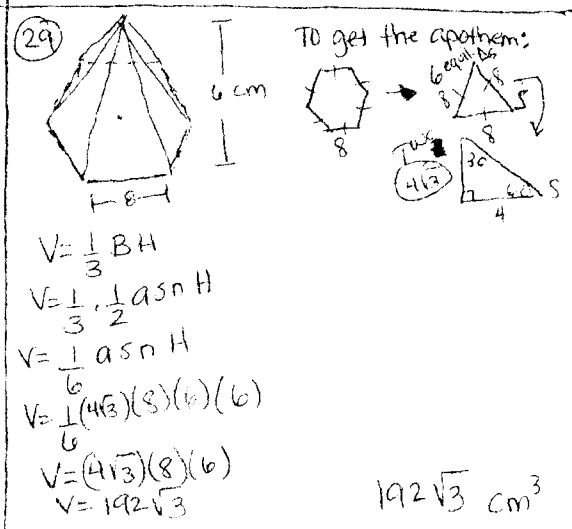 29
To get the apothem:
6 cm
6 equil. Δs
8
8
8
8
8
30
4√3
60
4
S
V = 1/3 BH
V = 1/3 · 1/2 a s n H
V = 1/6 a s n H
V = 1/6 (4√3)(8)(6)(6)
V = (4√3)(8)(6)
V = 192√3
192√3 cm³